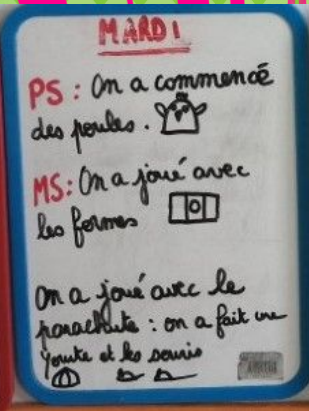 MARDI
PS : On a commencé
des poules.
MS : On a joué avec
les formes
On a joué avec le
parachute : on a fait une
Yourte et les souris